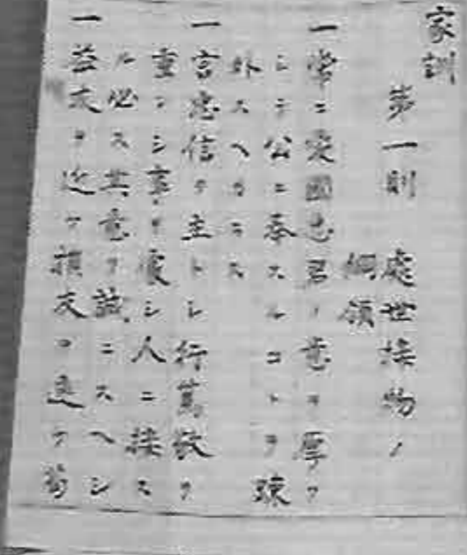 家訓
第一則 處世接物ノ
綱領
一常ニ愛國忠君ノ意ヲ厚フ
シテ公ニ奉スルコトヲ疎
外スヘカラス
一言忠信ヲ主トシ行篤敬ヲ
重ンシ事ヲ處シ人ニ接ス
ル必ス其意ヲ誠ニスヘシ
一益友ヲ近ケ損友ヲ遠ケ苟